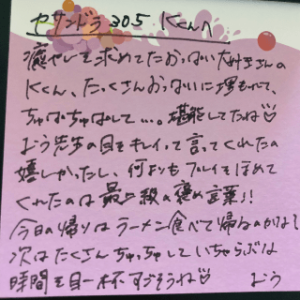 セサンドラ305 Kくんへ
癒やしを求めてたおっぱい大好きさんの
Kくん、たっくさんおっぱいに埋もれて、
ちゅぱちゅぱして…。堪能してたね♡
よう先生の目をキレイって言ってくれたの
嬉しかったし、何よりもフルイをほめて
くれたのは最上級の褒め言葉!!
今日の帰りはラーメン食べて帰るのかな?
次はたくさんちゅっちゅしていちゃらぶな
時間を目一杯すごそうね♡ よう